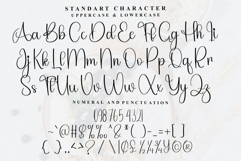 STANDART CHARACTER
UPPERCASE & LOWERCASE
Aa Bb Cc Dd Ee Ff Gg Hh Ii
Jj Kk Ll Mm Nn Oo Pp Qq Rr
Ss Tt Uu Vv Ww Xx Yy Zz
NUMERAL AND PUNCTUATION
0987654321
~`@#$%^&*()-_=+[]
{}.,<>?/\|©£¥©®